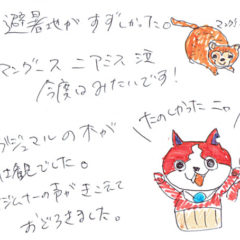 避暑地がすずしかった。
マングース ニアミス 泣
今度はみたいです!
ガジュマルの木が
は観でした。
たのしかったニャ
の声がきこえて
おどろきました。